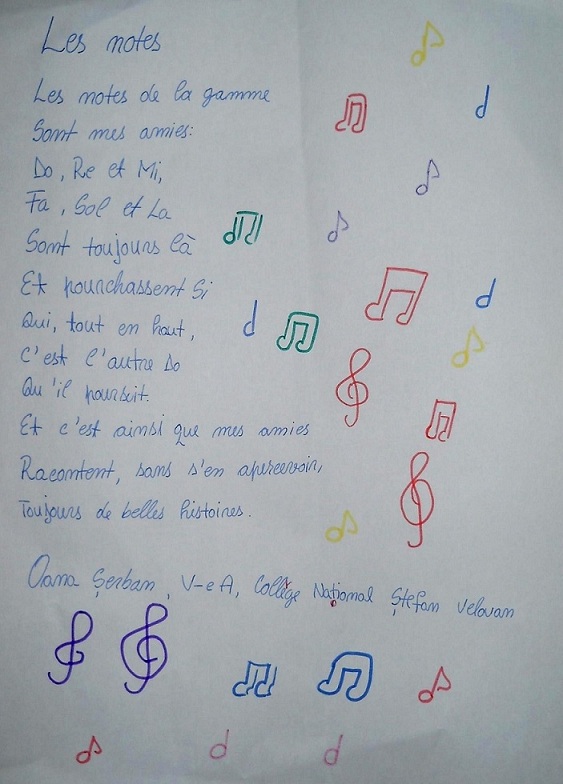 Les notes
Les notes de la gamme
Sont mes amies:
Do, Re et Mi,
Fa, Sol et La
Sont toujours là
Et pourchassent Si
Qui, tout en haut,
C'est l'autre Do
Qu'il poursuit.
Et c'est ainsi que mes amies
Racontent, sans s'en apercevoir,
Toujours de belles histoires.
Oana Șerban, V-e A, Collège Național Ștefan Velovan